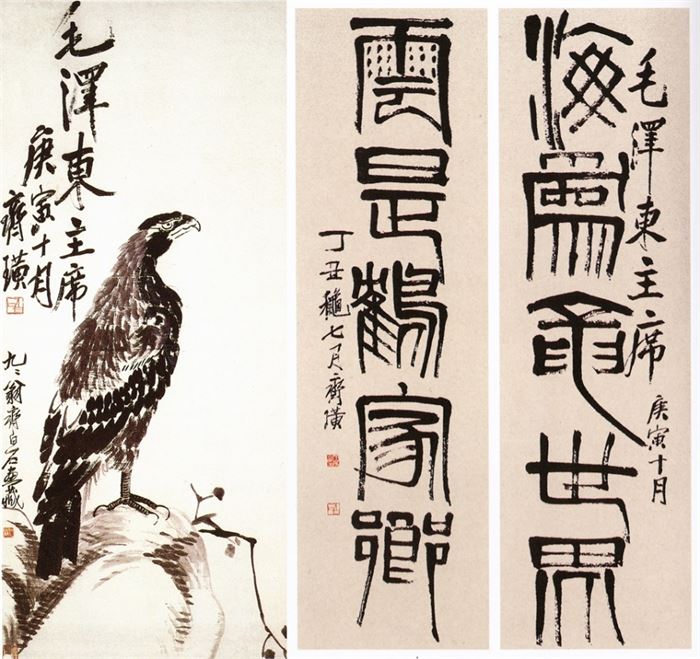 毛澤東主席
庚寅十月
齊璜
九二翁齊白石畫藏
毛澤東主席
庚寅十月
海爲龍世界
雲是鶴家鄉
丁丑穐七月齊璜